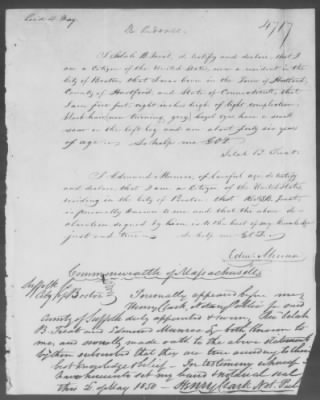 Rec'd 4 May
4717
I Selah B. Treat, do testify and declare, that I
am a Citizen of the United States, now a resident in the
City of Boston, that I was born in the Town of Hartford,
County of Hartford, and State of Connecticut, that
I am five feet, eight inches high, of light complection,
black hair, now turning, gray, hazel eyes have a small
scar on the left leg and am about forty six years
of age. So help me GOD.
Selah B Treat.
I Edmund Munroe, of lawful age, do testify
and declare, that I am a Citizen of the United States,
residing in the City of Boston that Treat
is personally known to me and that the above de-
claration signed by him is to the best of my knowledge
just and true — So help me GOD.
Edm Munroe
Commonwealth of Massachusetts
Suffolk ss
City of Boston Personally appeared before me
Henry Clark, Notary Public in and
County of Suffolk duly appointed & sworn, the Selah
B. Treat and Edmund Munroe both known to
me, and severally made oath to the above statement
by them subscribed that they are true according to their
best knowledge & belief. In testimony whereof
I have hereunto set my hand & notarial seal
this 2 of May 1850 — Henry Clark Not. Pub